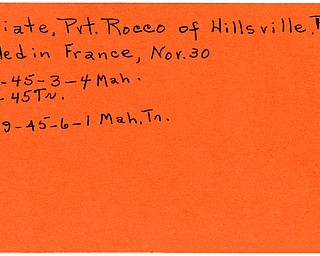 iate, Pvt. Rocco of Hillsville.
led in France, Nov. 30
-45-3-4 Mah.
-45 Tr.
9-45-6-1 Mah. Tr.